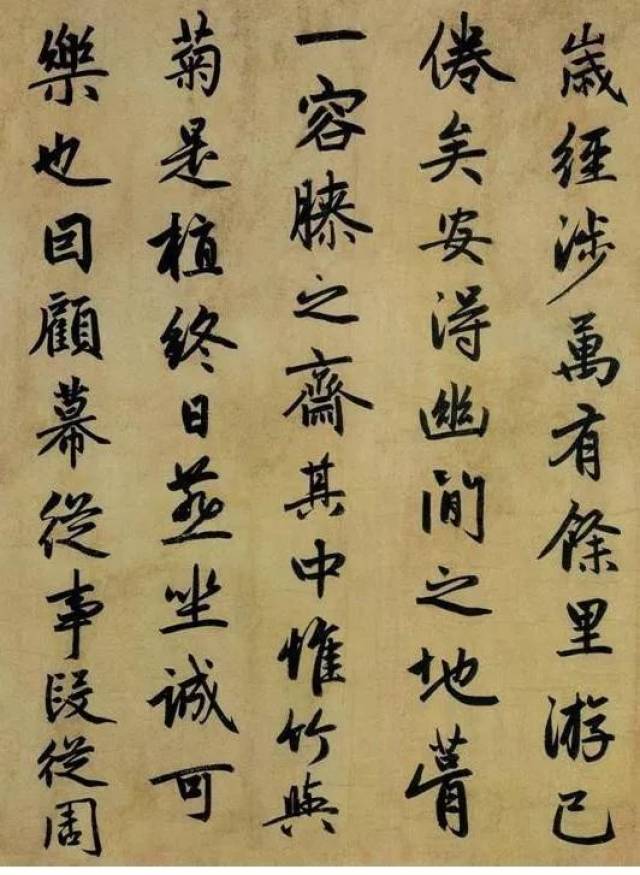 歲經涉萬有餘里游已
倦矣安得幽閒之地葺
一容膝之齋其中惟竹與
菊是植終日燕坐誠可
樂也囙顧幕從事段從周